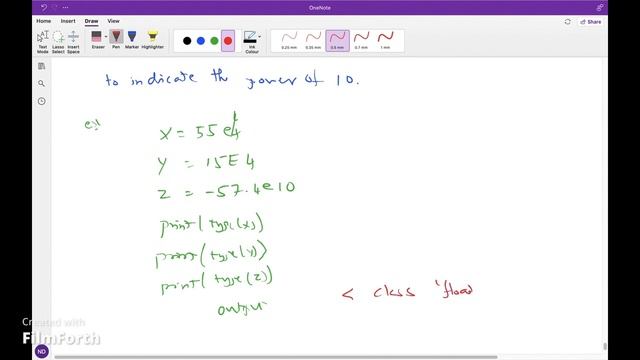 OneNote
Home Insert Draw View
Text Mode Lasso Select Insert Space Eraser Pen Marker Highlighter Ink Colour 0.25 mm 0.35 mm 0.5 mm 0.7 mm 1 mm
to indicate the power of 10.
ex:
x = 55e4
Y = 15E4
z = -57.4e10
print(type(x))
print(type(y))
print(type(z))
output
< class 'float
Created with
FilmForth
ND